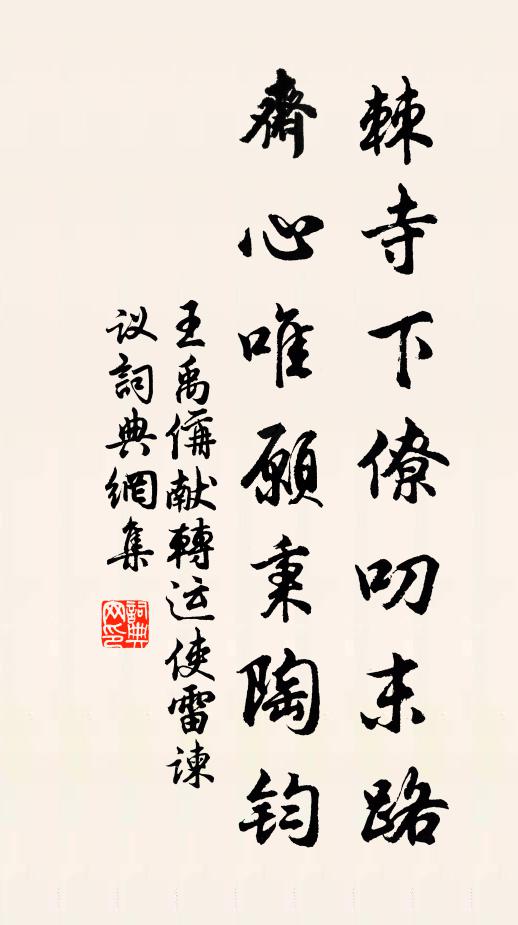 棘寺下僚叨末路
齋心唯願秉陶鈞
王禹偁献轉运使雷諫
议詞典網集
詞典网印